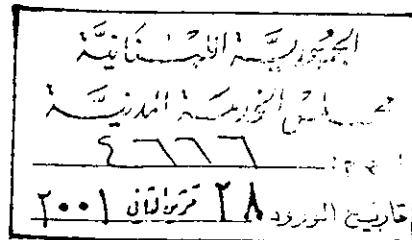 الجمهورية اللبنانية
مجلس الخدمة المدنية
٤٦٦٦
تاريخ الورود ٢٨ تشرين الثاني ٢٠٠١